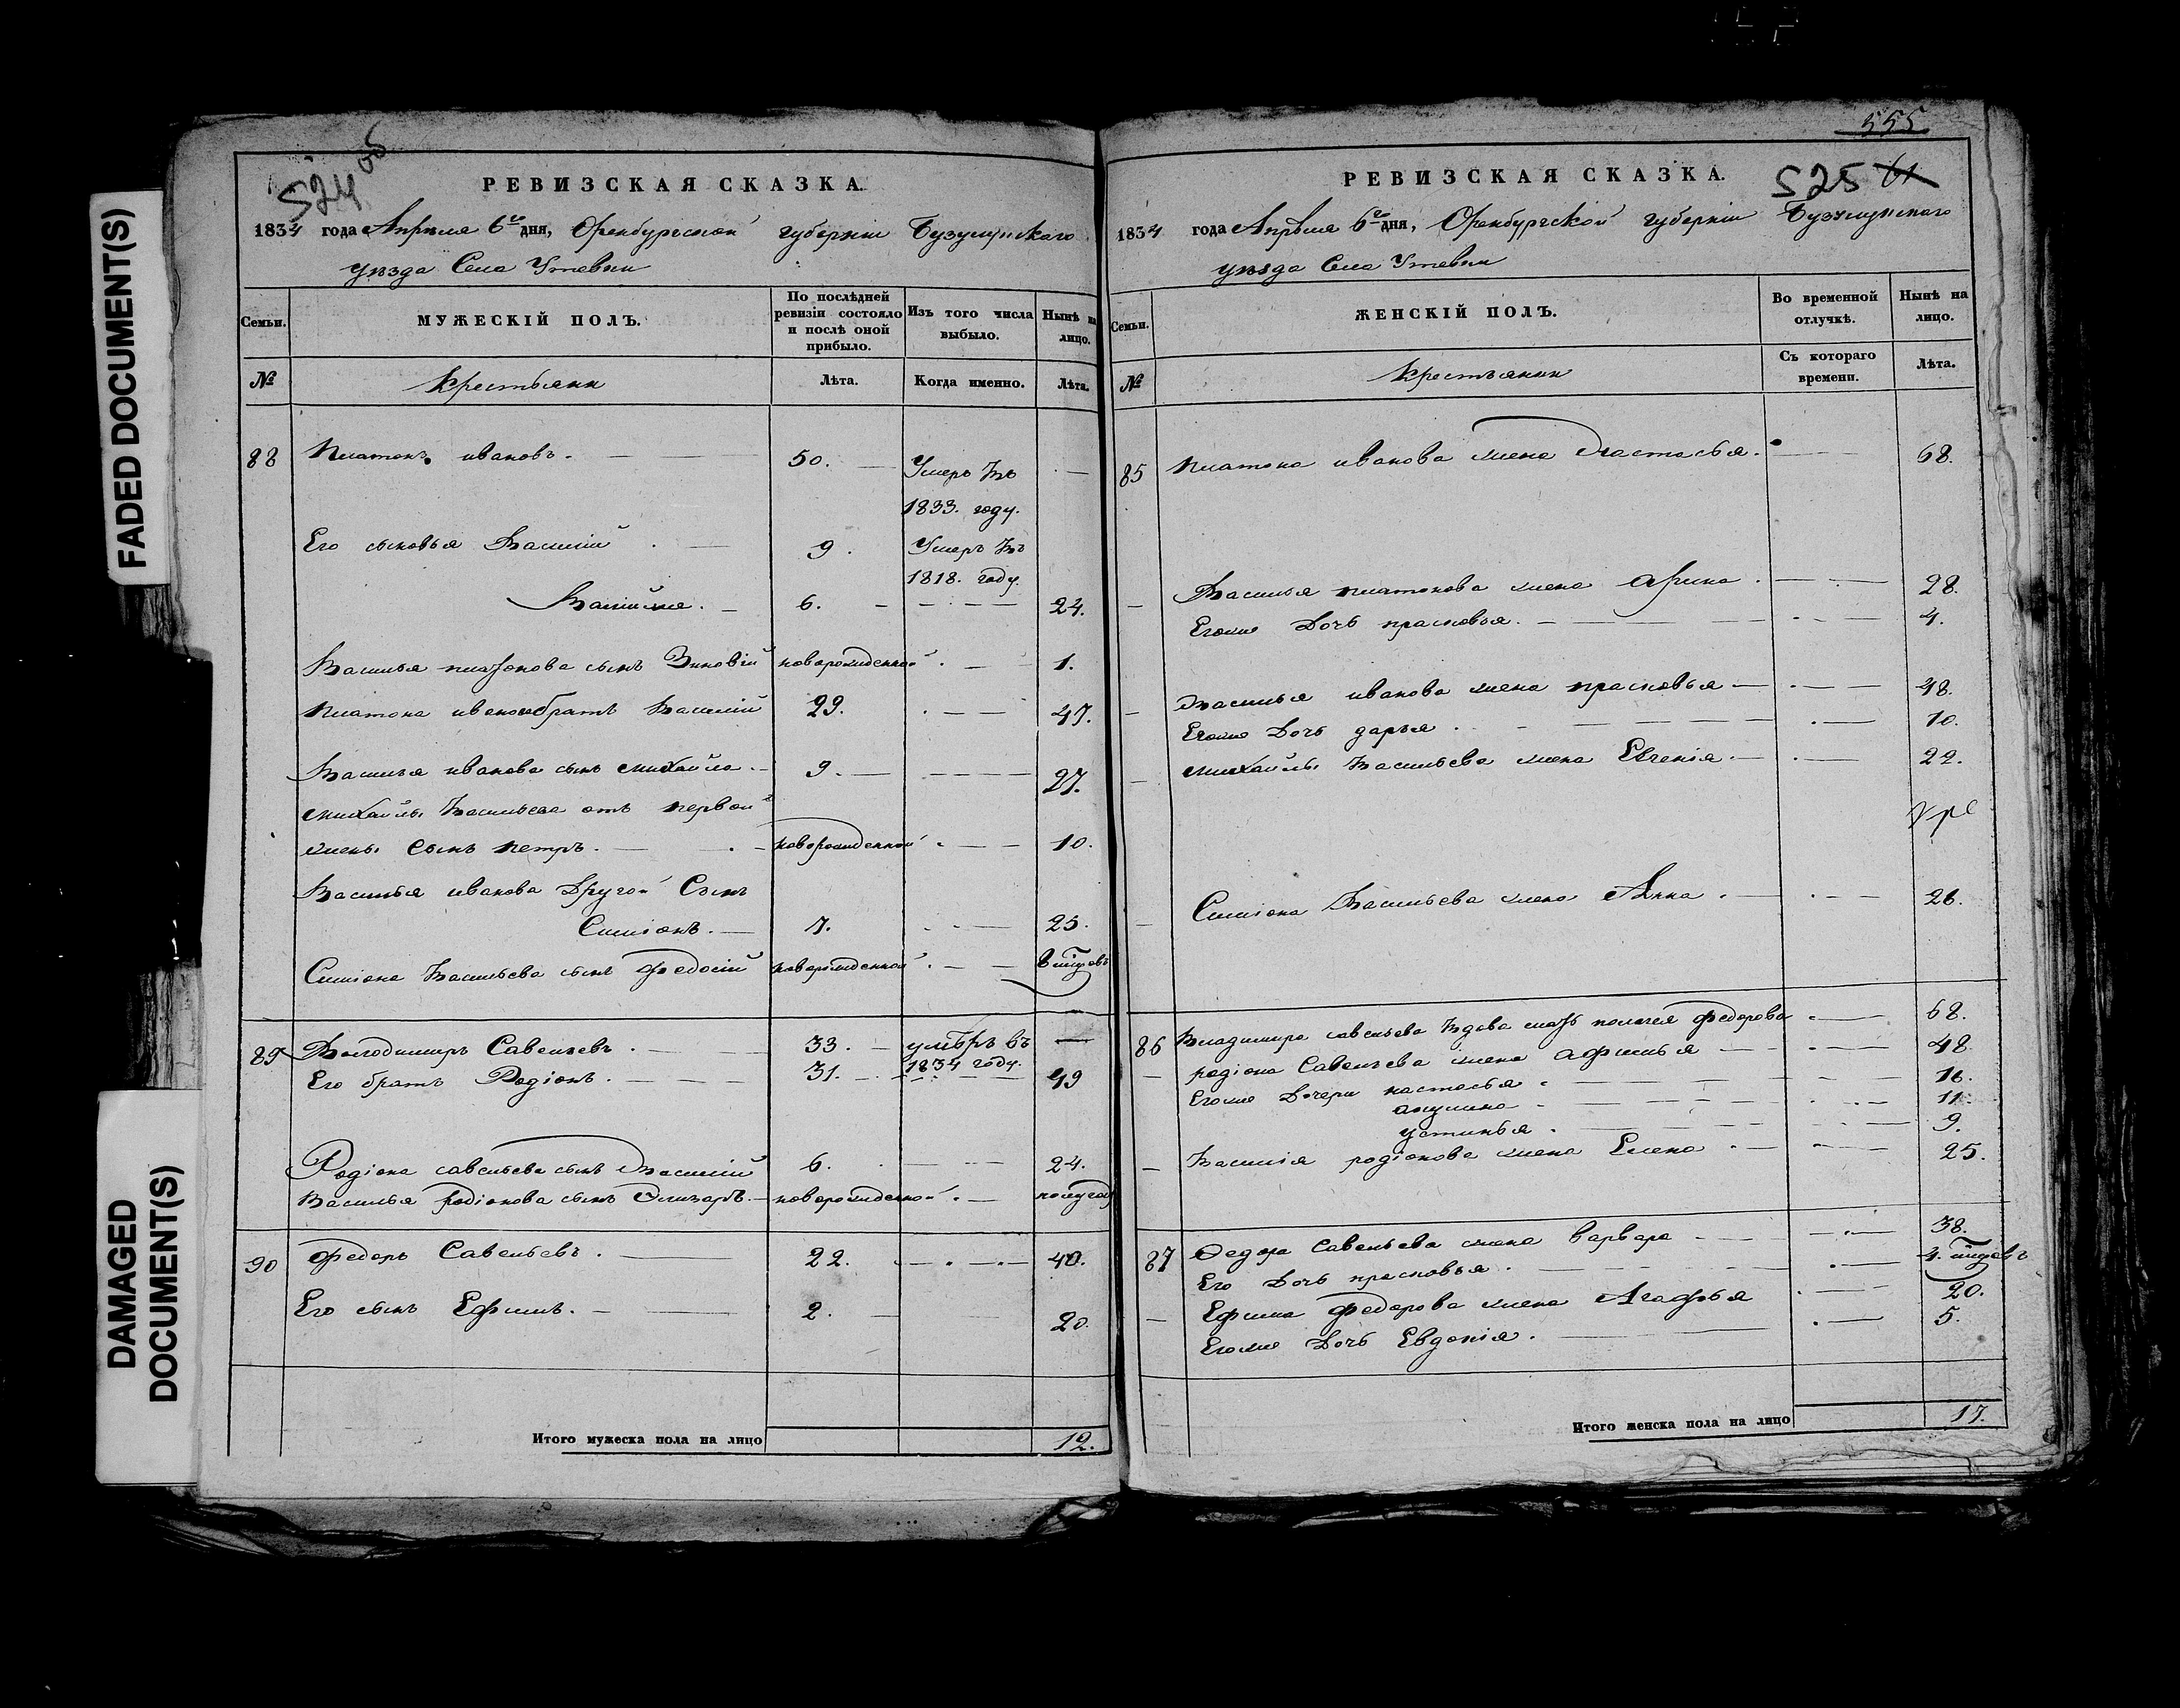 FADED DOCUMENT(S)
DAMAGED DOCUMENT(S)
524 об
РЕВИЗСКАЯ СКАЗКА.
1834 года Апреля 6го дня, Оренбургской губернiи Бузулукского
уезда Села Утевки
Семьи.
МУЖЕСКIЙ ПОЛЪ.
По послѣдней ревизiи состояло и послѣ оной прибыло.
Изъ того числа выбыло.
Нынѣ на лицо.
№
Крестьяни
Лѣта.
Когда именно.
Лѣта.
88 Платонъ ивановъ. 50. Умеръ въ
1833. году.
Его сыновья Василiй 9. Умеръ въ
1818. году.
6. 24.
Василья платонова сынъ Зиновiй новорожденной 1.
Платона иванова братъ Василiй 29. 47.
Василья иванова сынъ михайло. 9. 27.
михайлы Васильева отъ первой
жены Сынъ петръ. новорожденной 10.
Василья иванова Другой Сынъ
Симiонъ. 7. 25.
Симiона Васильева сынъ федосiй новорожденной
89 Володимиръ Савельевъ. 33. умеръ въ
1834 году.
Его братъ Родiонъ. 31. 49
Родiона савельева сынъ Василiй 6. 24.
Василья родiонова сынъ Элизаръ. новорожденной. полугоду
90 федоръ Савельевъ. 22. 40.
Его сынъ Ефимъ. 2. 20.
Итого мужеска пола на лицо 12.
555
525 61
РЕВИЗСКАЯ СКАЗКА.
1834 года Апреля 6го дня, Оренбургской губернiи Бузулукского
уезда Села Утевки
Семьи.
ЖЕНСКIЙ ПОЛЪ.
Во временной отлучкѣ.
Нынѣ на лицо.
№
Крестьянки
Съ котораго времени.
Лѣта.
85 Платона иванова жена Настасья. 68.
Василья платонова жена Арина. 28.
Егоже Дочь прасковья. 4.
Василья иванова жена прасковья 48.
Егоже Дочь дарья. 10.
михайлы Васильева жена Евгенiя. 22.
Симiона Васильева жена Анна. 26.
86 Владимира савельева Вдова мать федорова 68.
родiона Савельева жена афимья 48.
Егоже Дочери настасья. 16.
акулина 11.
устинья. 9.
Василiя родiонова жена Елена 25.
87 Федора Савельева жена варвара 38.
Его Дочь прасковья. 4.
Ефима федорова жена Агафья 20.
Егоже Дочь Евдокiя. 5.
Итого женска пола на лицо 17.